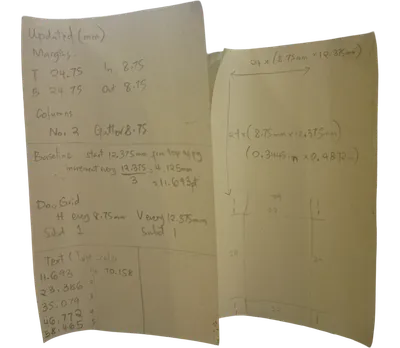 Updated (mm)
Margins
T 24.75 In 8.75
B 24.75 Out 8.75
Columns
No. 2 Gutter 8.75
Baseline start 12.375mm from top of pg
increment every 12.375 = 4.125mm
3
= 11.693pt
Doc Grid
H every 8.75mm V every 12.375mm
Subd 1 Subd 1
Text
11.693 70.158
23.386
35.079
46.772
58.465
24 x (8.75mm x 12.375mm)
(8.75mm x 12.375mm)